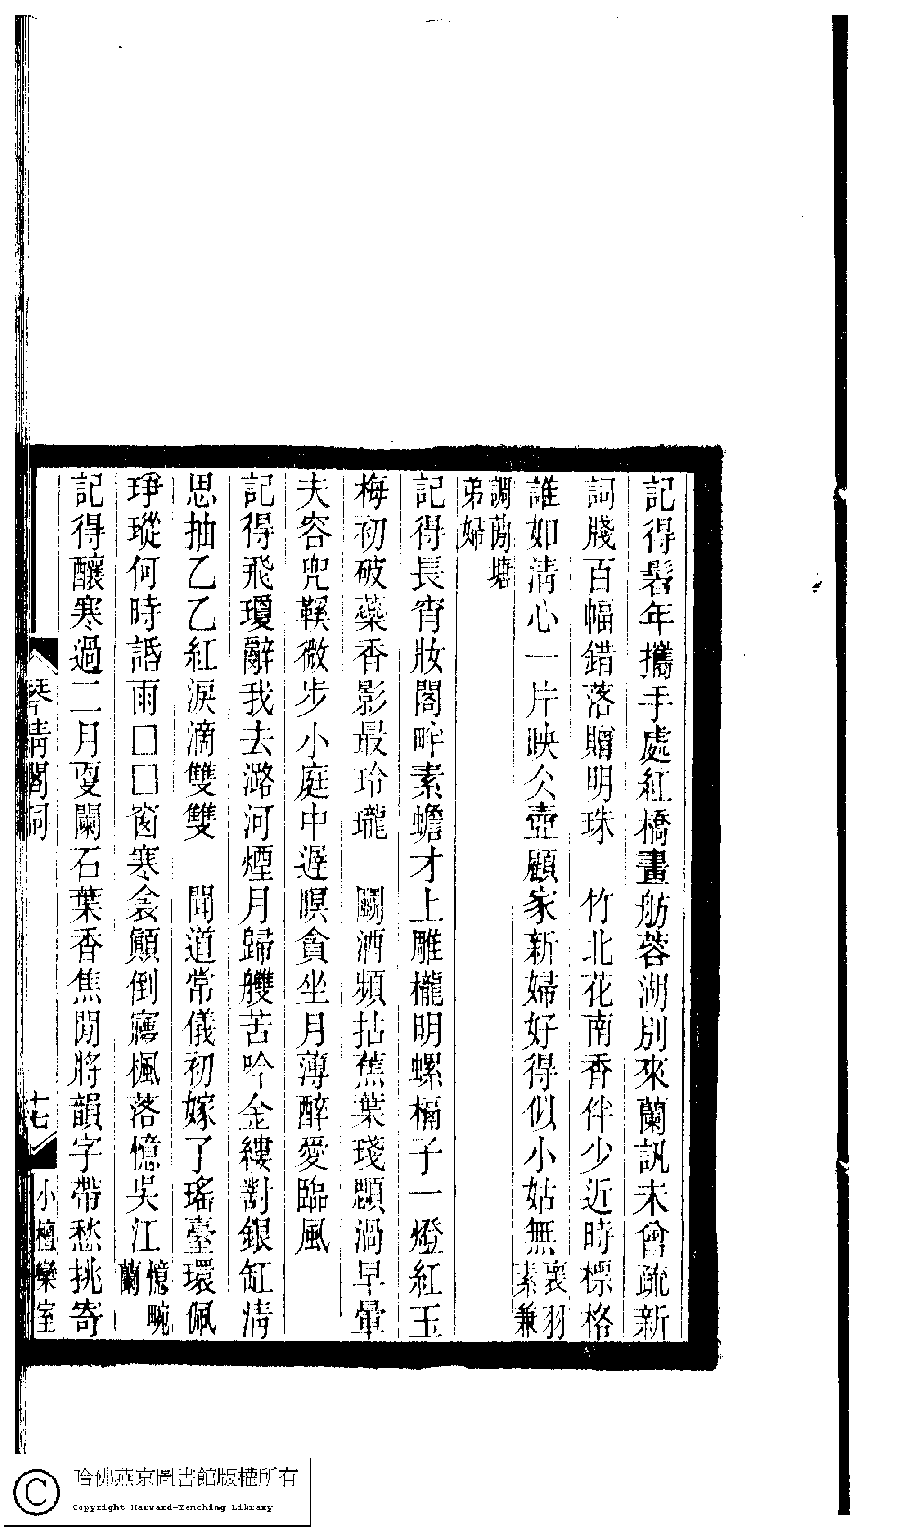 記得髫年攜手處紅橋畫舫蓉湖別來蘭訊未曾疏新
詞牋百幅錯落贈明珠　竹北花南香伴少近時標格
誰如清心一片映仌壺顧家新婦好得似小姑無寄羽素兼
調蘭塘弟婦
記得長宵妝閣畔素蟾才上雕櫳明螺槅子一燈紅玉
梅初破蘂香影最玲瓏　鬭酒頻拈蕉葉琖顋渦早暈
夫容兜鞵微步小庭中遲暝貪坐月薄醉愛臨風
記得飛瓊辭我去潞河煙月歸艭苦吟金縷對銀缸淸
思抽乙乙紅淚滴雙雙　聞道常儀初嫁了瑤臺環佩
琤瑽何時話雨□□窗寒衾顚倒寱楓落憶吳江憶畹蘭
記得釀寒過二月更闌石葉香焦閒將韻字帶愁挑寄
琴淸閣詞
十七
小檀欒室
哈佛燕京圖書館版權所有
Copyright Harvard-Yenching Library